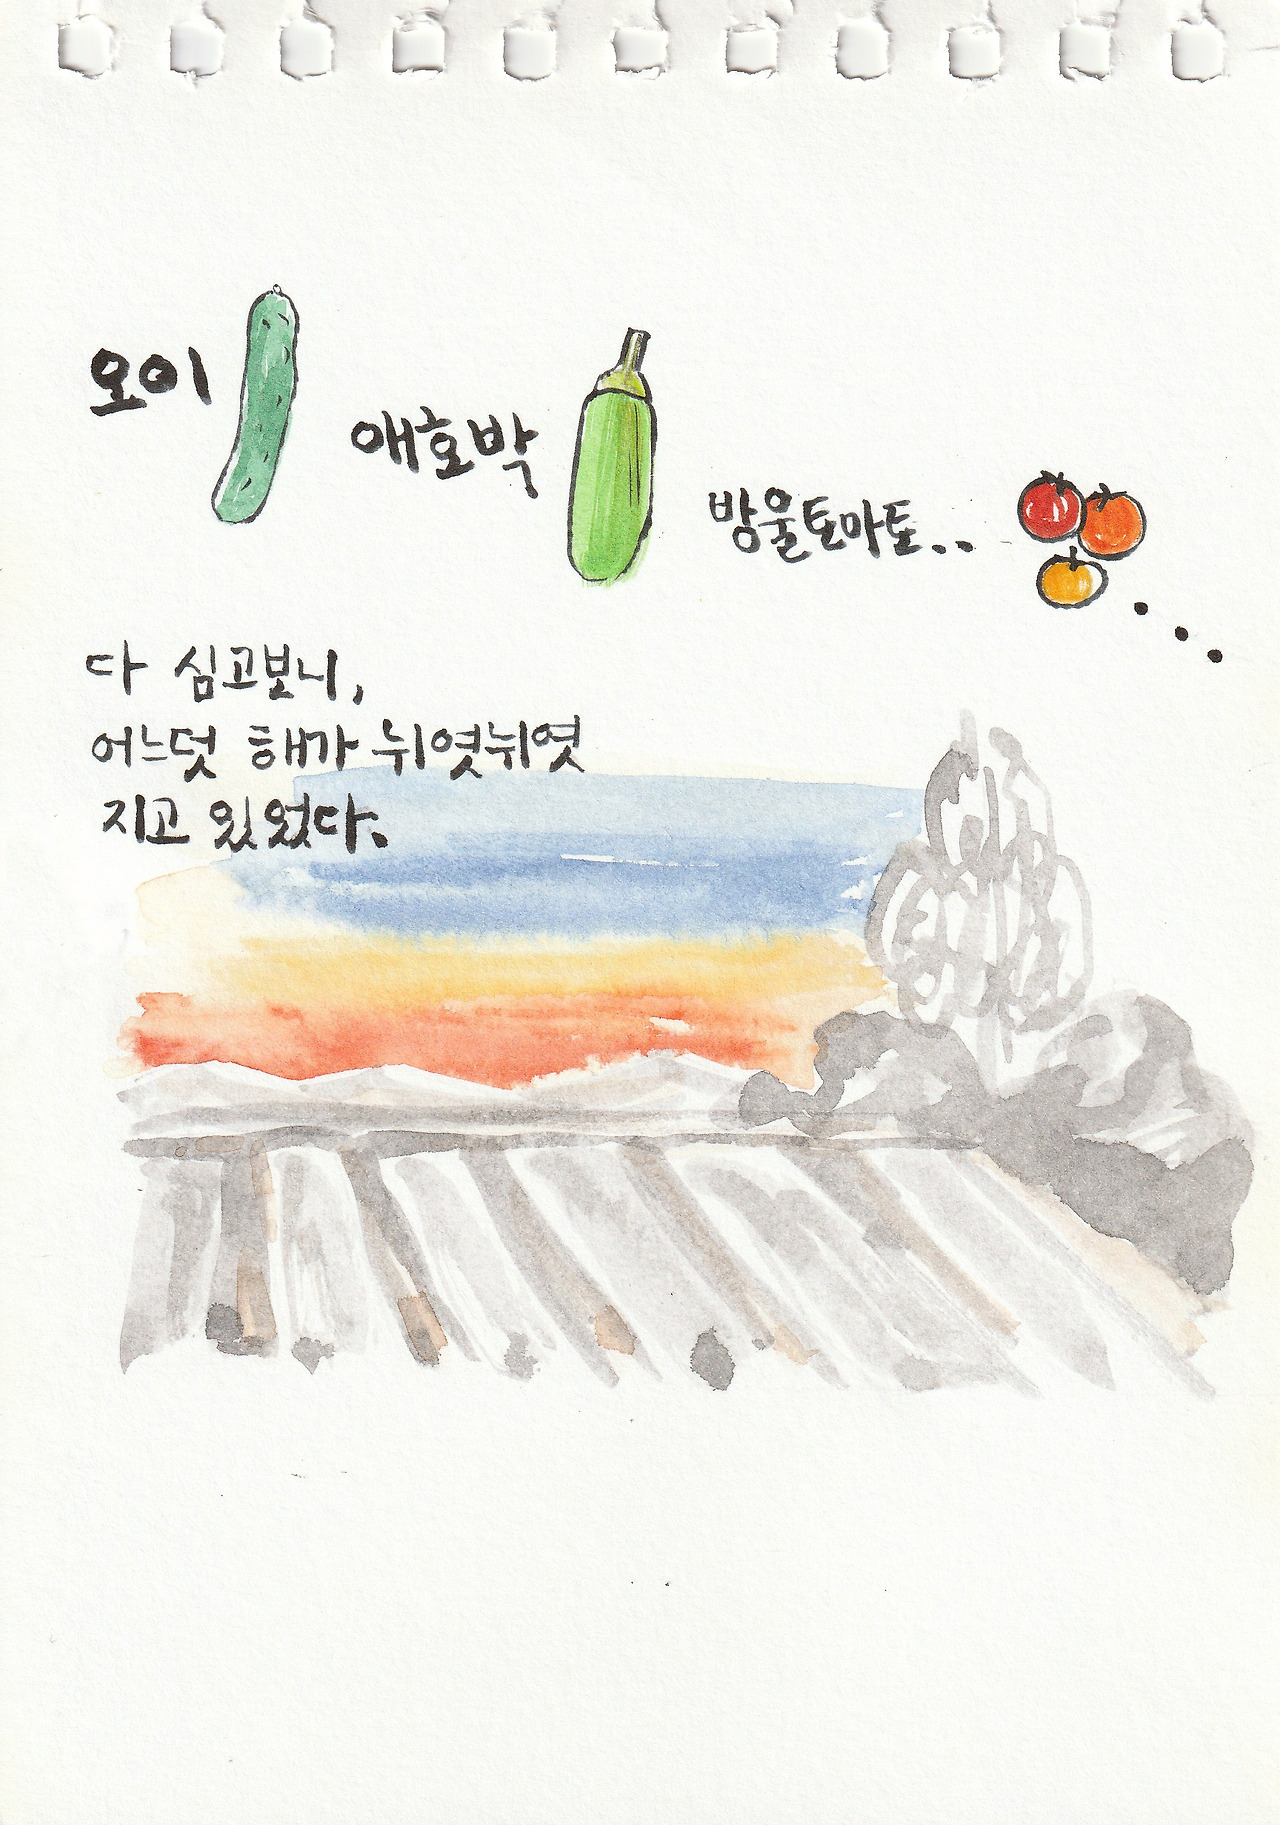 오이
애호박
방울토마토..
다 심고보니,
어느덧 해가 뉘엿뉘엿
지고 있었다.